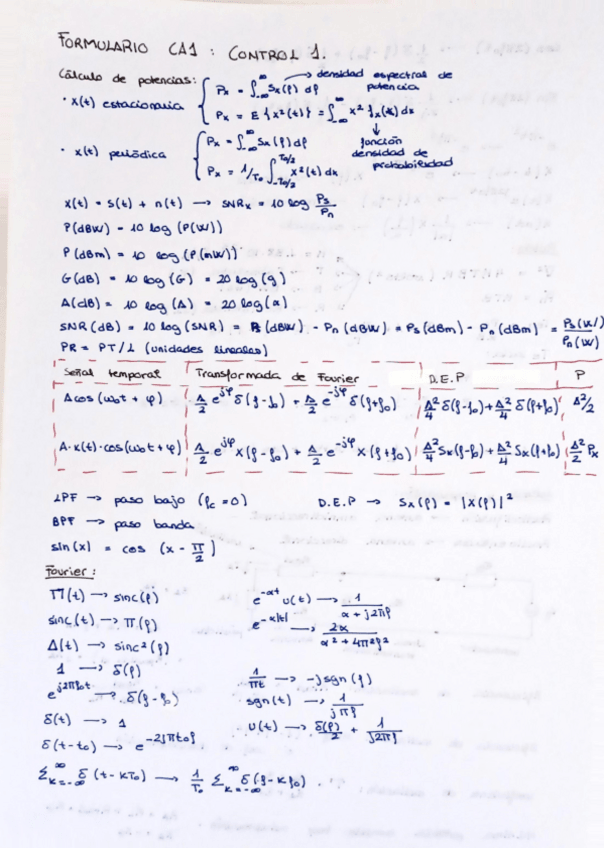 FORMULARIO CA1 : CONTROL 1.
Cálculo de potencias:
· x(t) estacionaria { Px = ∫_{-∞}^{∞} Sx(f) df → densidad espectral de potencia
Px = E{x²(t)} = ∫_{-∞}^{∞} x² fx(x) dx → función densidad de probabilidad
· x(t) periódica { Px = ∫_{-∞}^{∞} Sx(f) df
Px = 1/To ∫_{-To/2}^{To/2} x²(t) dx
x(t) = s(t) + n(t) → SNRx = 10 log Ps/Pn
P(dBW) = 10 log (P(W))
P(dBm) = 10 log (P(mW))
G(dB) = 10 log (G) = 20 log (g)
A(dB) = 10 log (A) = 20 log (α)
SNR (dB) = 10 log (SNR) = Ps (dBW) - Pn (dBW) = Ps (dBm) - Pn (dBm) = Ps(W)/Pn(W)
PR = PT/L (unidades lineales)
Señal temporal | Transformada de Fourier | D.E.P | P
A cos (ω₀t + φ) | A/2 e^{jφ} δ(f-f₀) + A/2 e^{-jφ} δ(f+f₀) | A²/4 δ(f-f₀) + A²/4 δ(f+f₀) | A²/2
A·x(t)·cos(ω₀t + φ) | A/2 e^{jφ} X(f-f₀) + A/2 e^{-jφ} X(f+f₀) | A²/4 Sx(f-f₀) + A²/4 Sx(f+f₀) | A²/2 Px
LPF → paso bajo (fc = 0) D.E.P → Sx(f) = |X(f)|²
BPF → paso banda
sin (x) = cos (x - π/2)
Fourier :
Π(t) → sinc(f) e^{-αt} u(t) → 1/(α + j2πf)
sinc(t) → Π(f) e^{-α|t|} → 2α/(α² + 4π²f²)
Λ(t) → sinc²(f)
1 → δ(f) 1/πt → -jsgn(f)
e^{j2πf₀t} → δ(f-f₀) sgn(t) → 1/jπf
δ(t) → 1 u(t) → δ(f)/2 + 1/j2πf
δ(t-t₀) → e^{-2jπt₀f}
Σ_{k=-∞}^{∞} δ(t-kT₀) → 1/T₀ Σ_{k=-∞}^{∞} δ(f-kf₀)